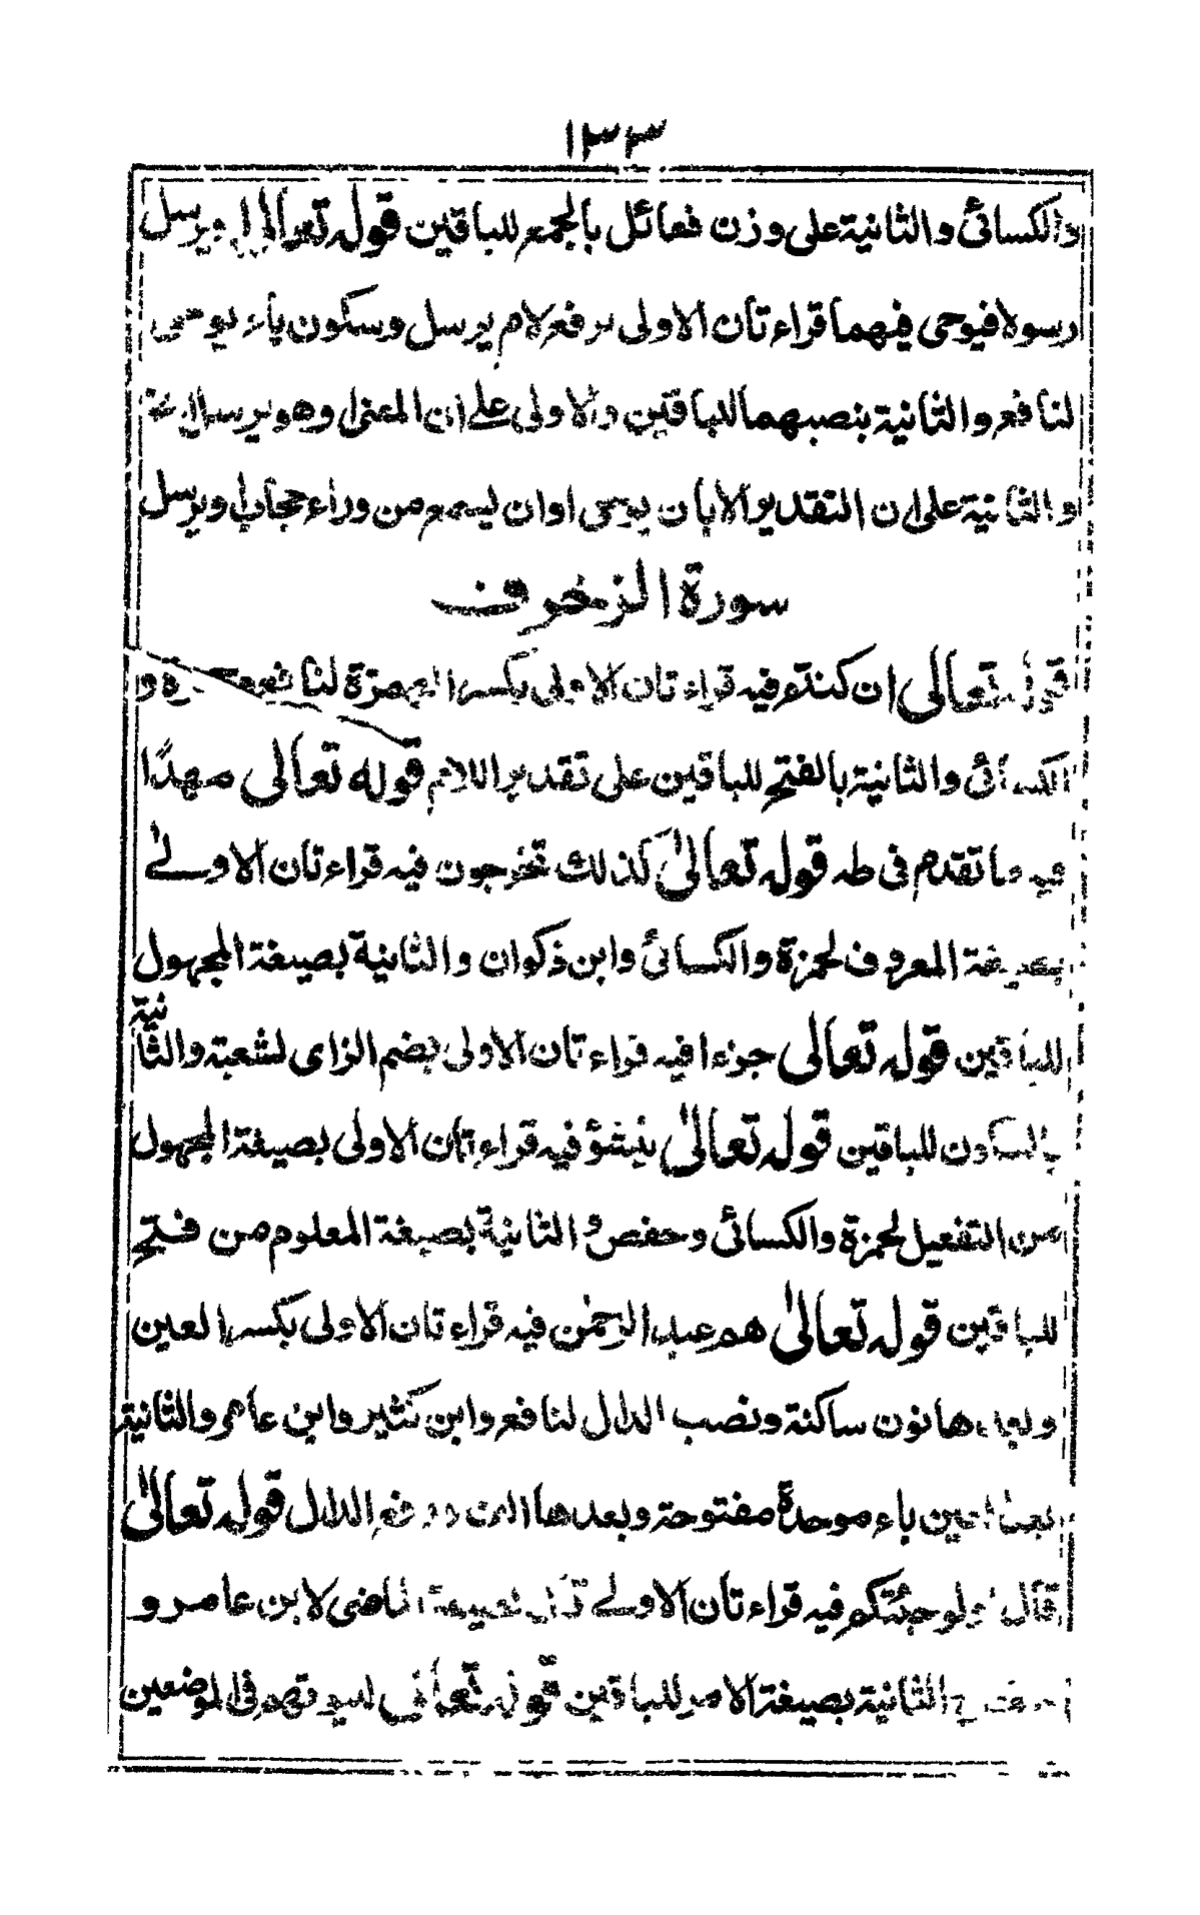 ١٣٣
والكسائي والثانية على وزن فعائل بالجمع للباقين قوله تعالى او يرسل
رسولا فيوحى فيهما قراءتان الاولى برفع لام يرسل وسكون ياء يوحى
لنافع والثانية بنصبهما للباقين والاولى على ان المعنى او هو يرسل
والثانية على ان التقدير الا بان يوحى او ان يسمع من وراء حجاب او يرسل
سورة الزخرف
قوله تعالى ان كنتم فيه قراءتان الاولى بكسر الهمزة لنافع وحمزة و
الكسائى والثانية بالفتح للباقين على تقدير اللام قوله تعالى مهدًا
فيه ما تقدم فى طه قوله تعالىٰ كذلك تخرجون فيه قراءتان الاولےٰ
بصيغة المعروف لحمزة والكسائى وابن ذكوان والثانية بصيغة المجهول
للباقين قوله تعالى جزءا فيه قراءتان الاولى بضم الزاى لشعبة والثانية
بالسكون للباقين قوله تعالىٰ ينشؤ فيه قراءتان الاولى بصيغة المجهول
من التفعيل لحمزة والكسائى وحفص والثانية بصيغة المعلوم من فتح
للباقين قوله تعالىٰ هم عبد الرحمٰن فيه قراءتان الاولى بكسر العين
وبعدها نون ساكنة ونصب الدال لنافع وابن كثير وابن عامر والثانية
بعد العين باء موحدة مفتوحة وبعدها الف ورفع الدال قوله تعالىٰ
قال اولو جئتكم فيه قراءتان الاولے قال بصيغة الماضى لابن عامر و
حفص والثانية بصيغة الامر للباقين قوله تعالى لبيوتهم فى الموضعين